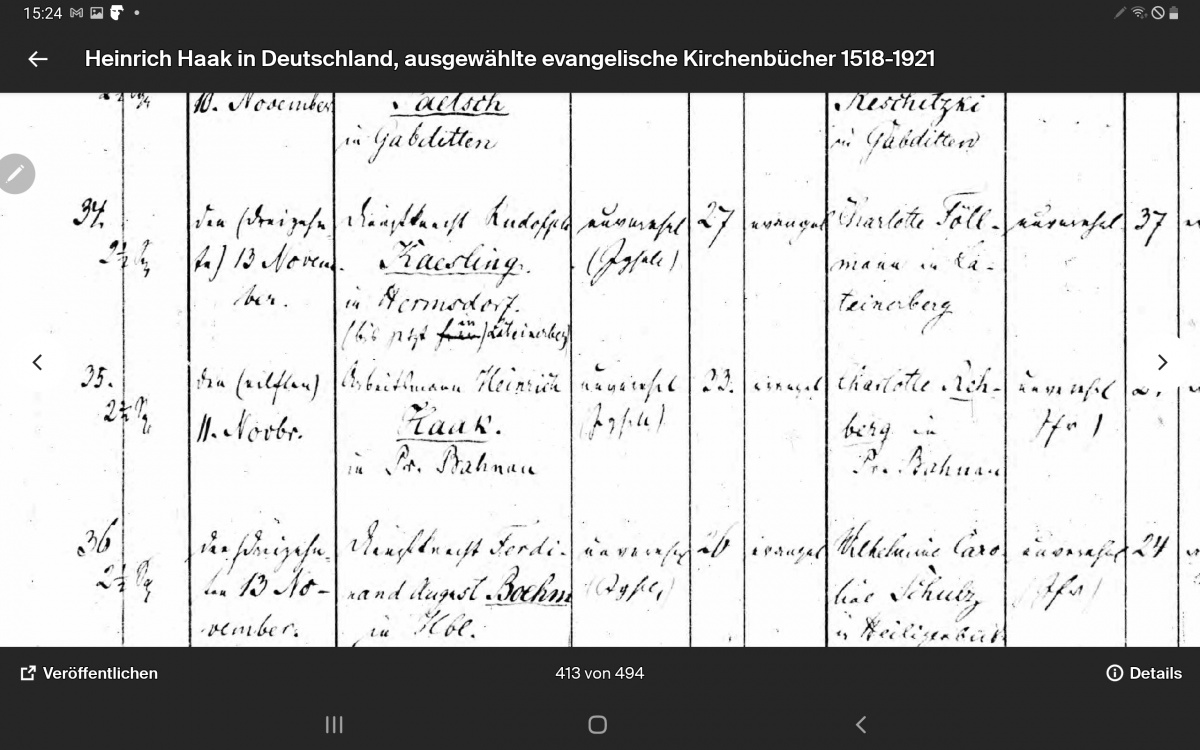 15:24
Heinrich Haak in Deutschland, ausgewählte evangelische Kirchenbücher 1518-1921
10. November
Paetsch
in Gabditten
Reschitzki
in Gabditten
34.
den (dreizehn-
te) 13 Novem-
ber.
Dienstknecht Rudolph
Kaesling.
in Hermsdorf.
(bis jetzt in Lateinerberg)
unverehel
(Jgsele)
27
evangel
Charlotte Föll-
mann in La-
teinerberg
unverehel.
37
35.
den (eilften)
11. Novbr.
Arbeitsmann Heinrich
Haak.
in Pr. Bahnau
unverehel
23.
evangel
Charlotte Reh-
berg in
Pr. Bahnau
unverehel
(Jfr)
36
den (dreizehn-
ten 13 No-
vember.
Dienstknecht Ferdi-
nand August Boehm
in Hbl.
unverehel
26
evangel
Wilhelmine Caro-
line Schulz
in Heiligenbeil
unverehel
(Jfr)
24
Veröffentlichen
413 von 494
Details